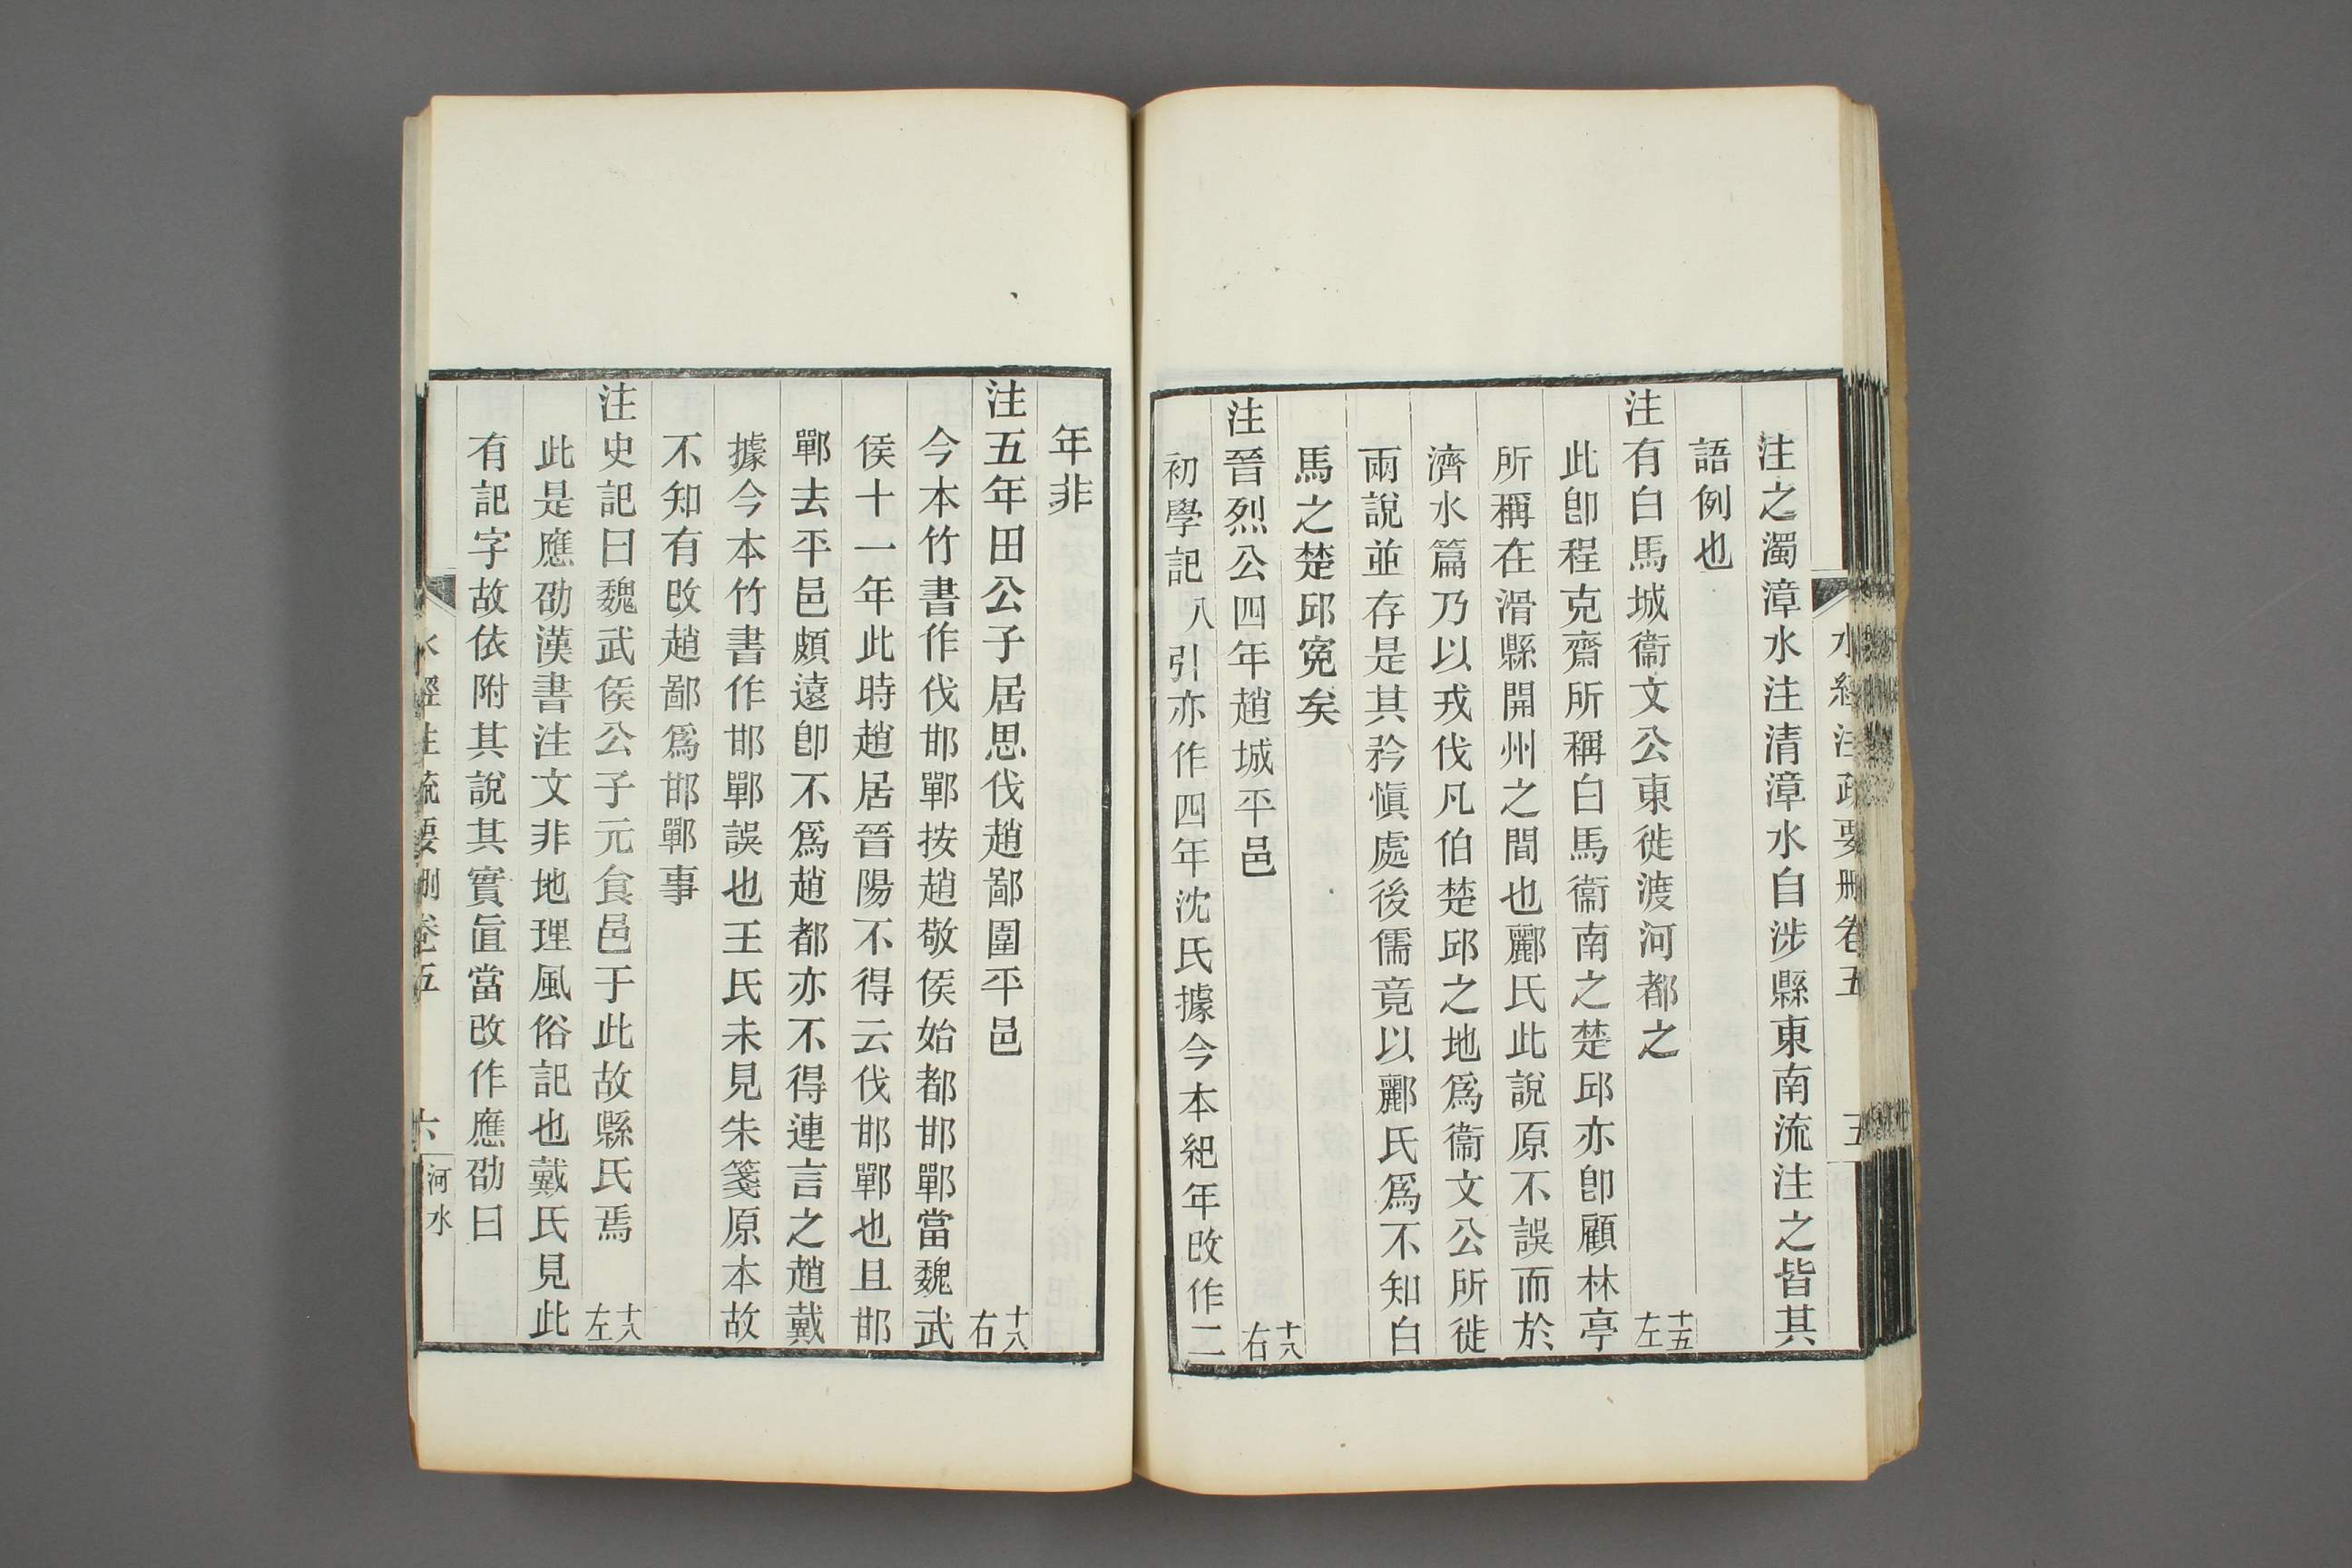 水經注疏要刪卷五
五
注之濁漳水注清漳水自涉縣東南流注之皆其
語例也
注有白馬城衞文公東徙渡河都之 十五左
此卽程克齋所稱白馬衞南之楚邱亦卽顧林亭
所稱在滑縣開州之間也酈氏此說原不誤而於
濟水篇乃以戎伐凡伯楚邱之地爲衞文公所徙
兩說並存是其矜愼處後儒竟以酈氏爲不知白
馬之楚邱寃矣
注晉烈公四年趙城平邑 十八右
初學記八引亦作四年沈氏據今本紀年改作二
年非
注五年田公子居思伐趙鄙圍平邑 十八右
今本竹書作伐邯鄲按趙敬侯始都邯鄲當魏武
侯十一年此時趙居晉陽不得云伐邯鄲也且邯
鄲去平邑頗遠卽不爲趙都亦不得連言之趙戴
據今本竹書作邯鄲誤也王氏未見朱箋原本故
不知有改趙鄙爲邯鄲事
注史記曰魏武侯公子元食邑于此故縣氏焉 十八左
此是應劭漢書注文非地理風俗記也戴氏見此
有記字故依附其說其實眞當改作應劭曰
水經注疏要刪卷五
六
河水